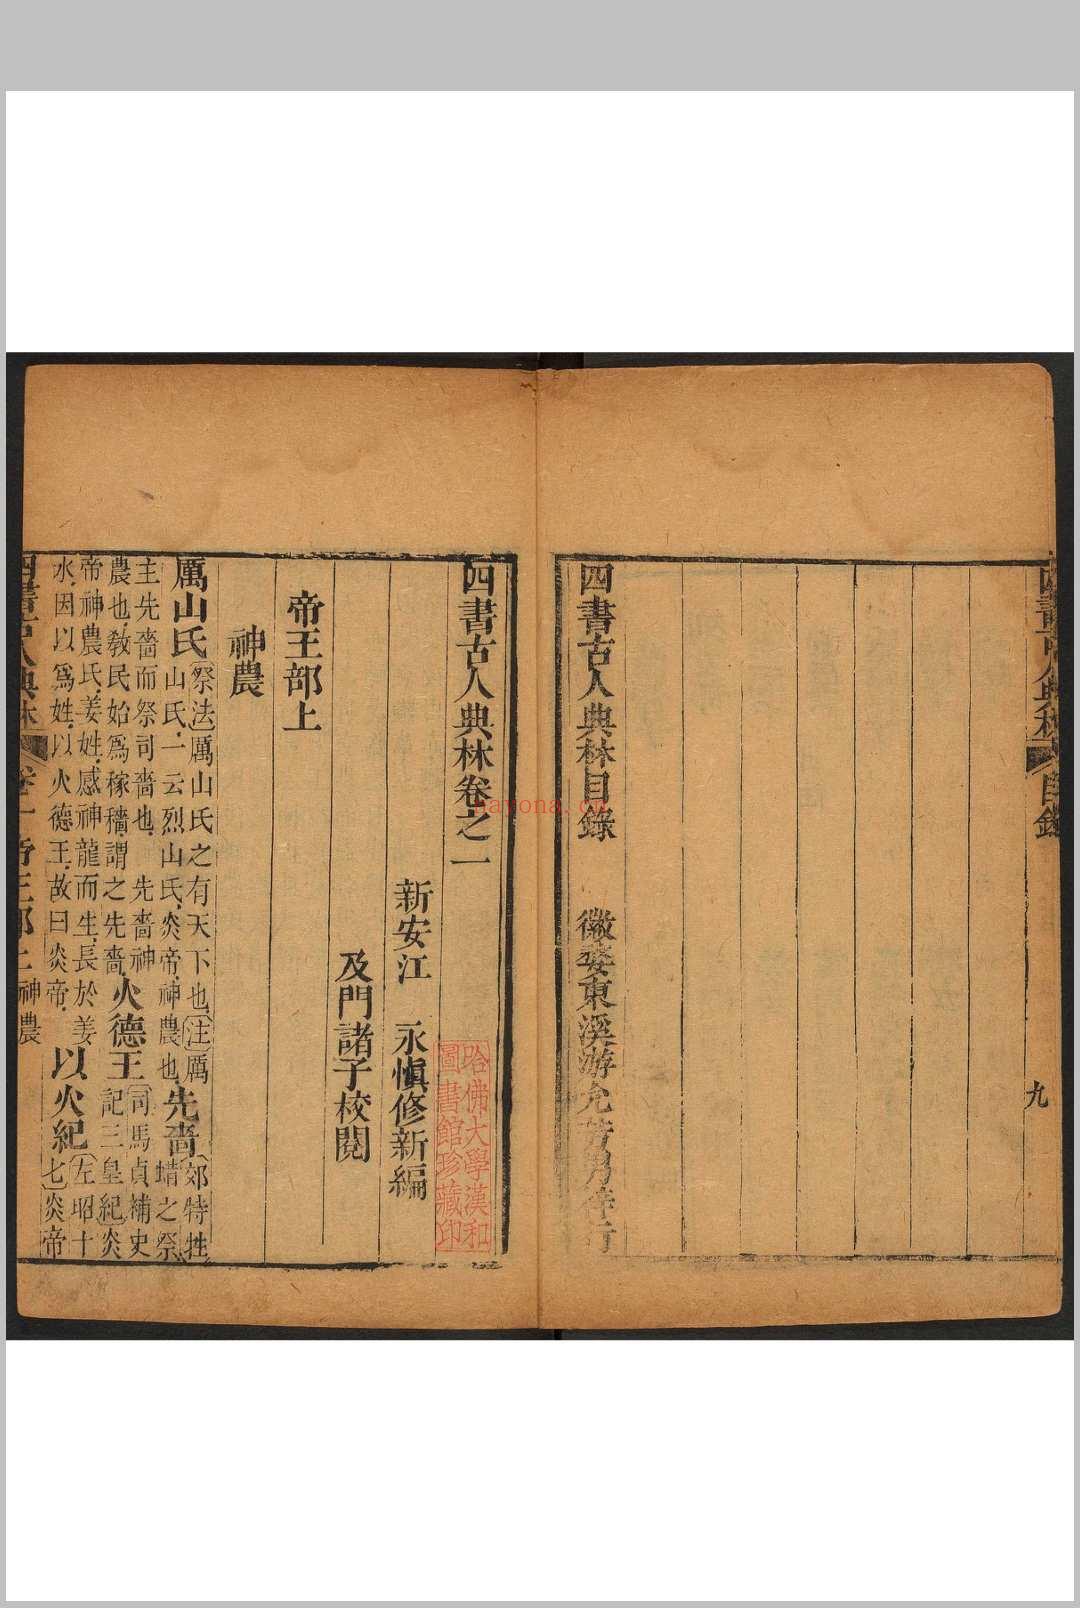 四書古人典林 目錄 九
四書古人典林目錄 徽婺東溪游允
四書古人典林卷之一
新安江 永慎修新編
及門諸子校閱
帝王部上
神農
厲山氏 祭法厲山氏之有天下也注厲山氏一云烈山氏炎帝神農也 先嗇 郊特牲蜡之祭
主先嗇而祭司嗇也 先嗇神農也教民始爲稼穡謂之先嗇 火德王 司馬貞補史記三皇紀炎
帝神農氏姜姓感神龍而生長於姜水因以爲姓以火德王故曰炎帝 以火紀 左昭十七炎帝
四書古人典林 卷一帝王部上 神農
哈佛大學漢和
圖書館珍藏印
nayona.cn